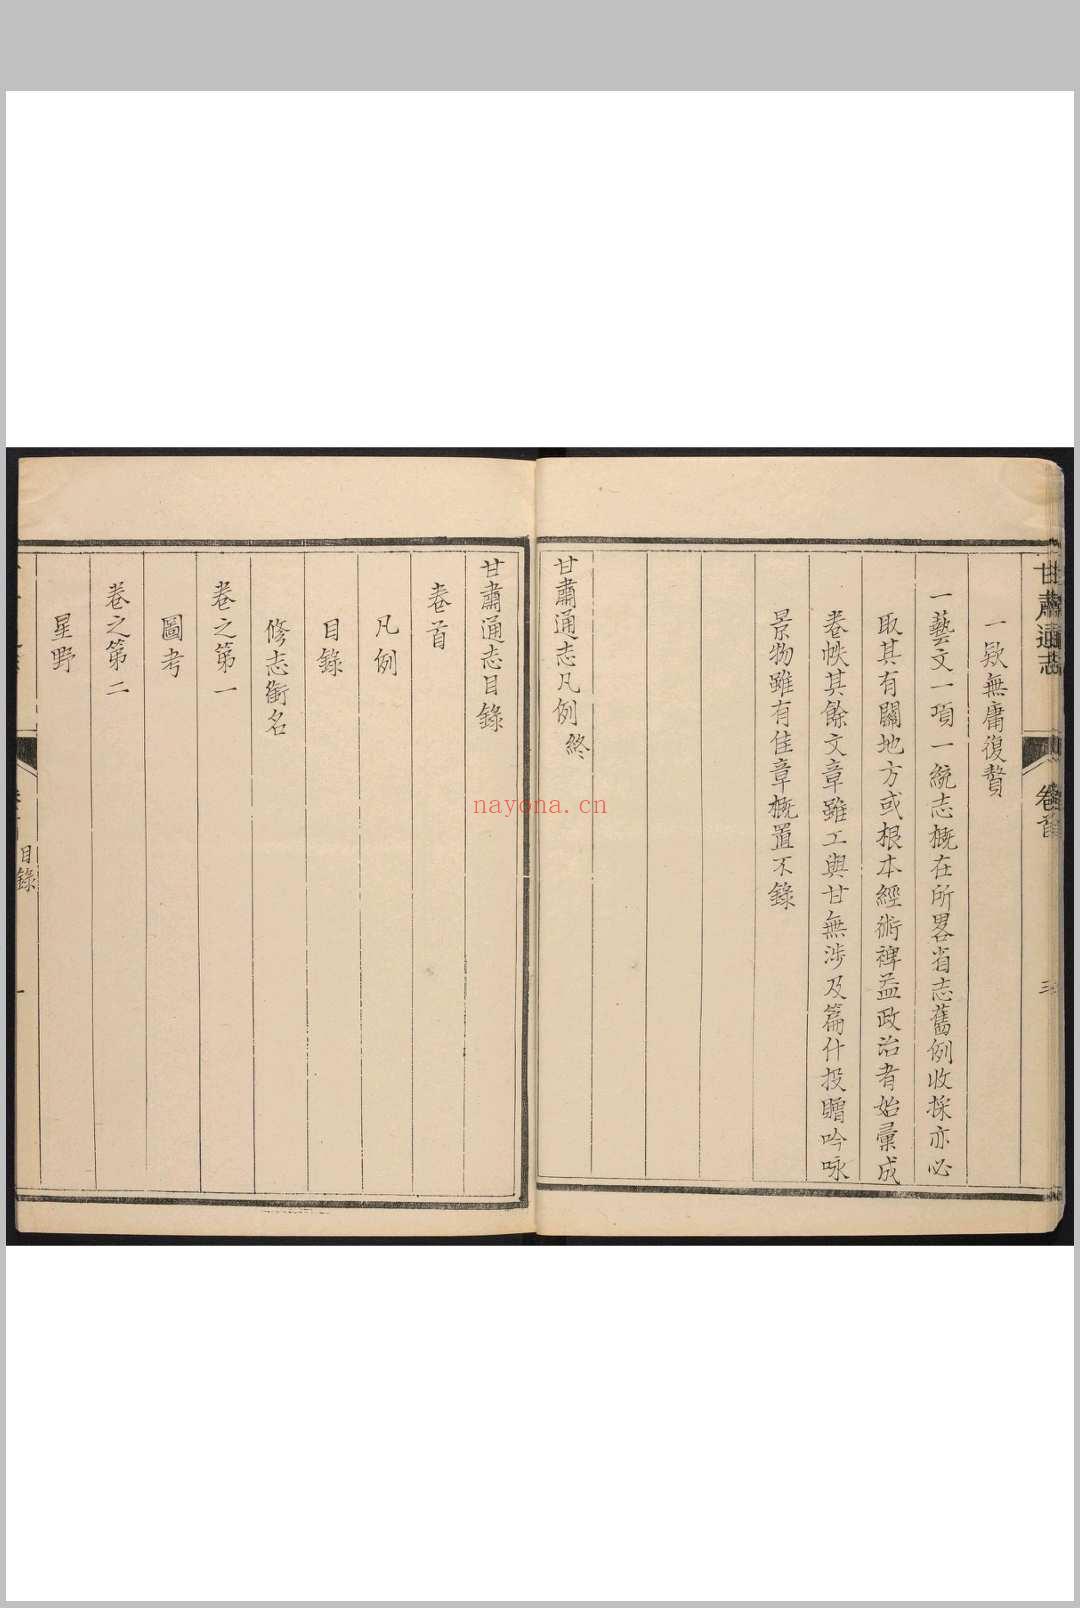 甘肅通志
卷首
三
一欵無庸復贅
一藝文一項一統志概在所畧省志舊例收採亦必
取其有關地方或根本經術裨益政治者始彙成
卷帙其餘文章雖工與甘無涉及篇什投贈吟咏
景物雖有佳章概置不錄
甘肅通志凡例終
甘肅通志目錄
卷首
凡例
目錄
修志銜名
卷之第一
圖考
卷之第二
星野
目錄
一
nayona.cn